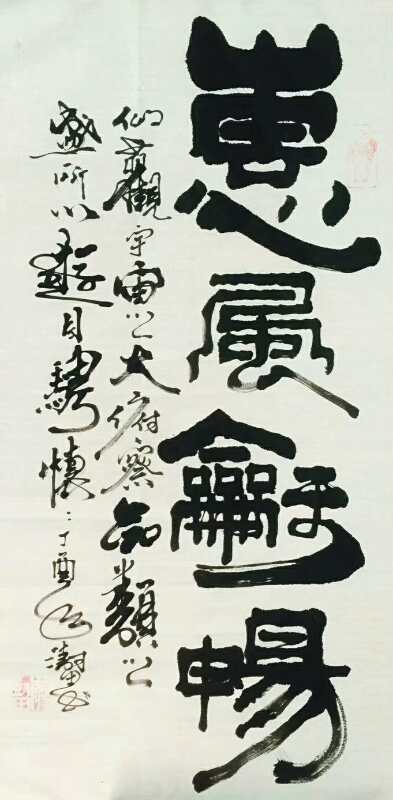 惠風龢暢
仰觀宇宙之大俯察品類之
盛所以遊目騁懷丁酉